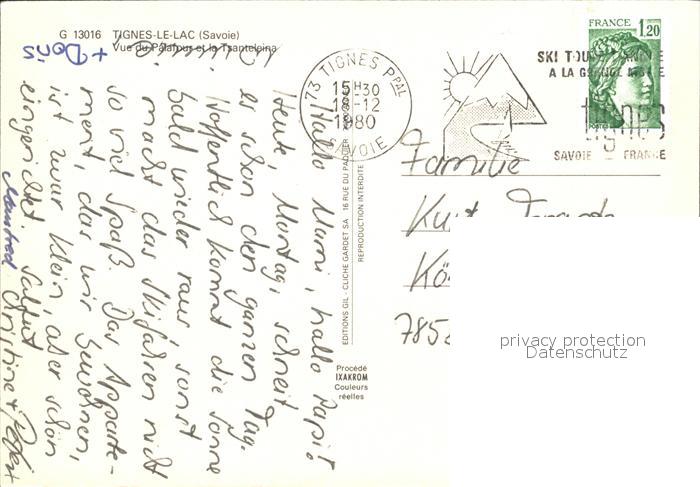 G 13016 TIGNES-LE-LAC (Savoie)
Vue du Palafour et la Tsanteleina
73 TIGNES PPAL
15H30
18-12
1980
SAVOIE
SKI TOUTE
A LA GRANDE
tignes
SAVOIE - FRANCE
FRANCE
1,20
POSTES
Hallo Mami, hallo Papi!
Heute, Montag, schneit
es schon den ganzen Tag.
Hoffentlich kommt die Sonne
bald wieder raus, sonst
macht das Skifahren nicht
so viel Spaß. Das Apparte-
ment das wir bewohnen,
ist zwar klein, aber schön
eingerichtet. Salut
Christine + Peter
Manfred
+ Doris
EDITIONS GIL - CLICHE GARDET SA 16 RUE DU
REPRODUCTION INTERDITE
Procédé
IXAKROM
Couleurs
réelles
Familie
Kurt
Kö
785
privacy protection
Datenschutz